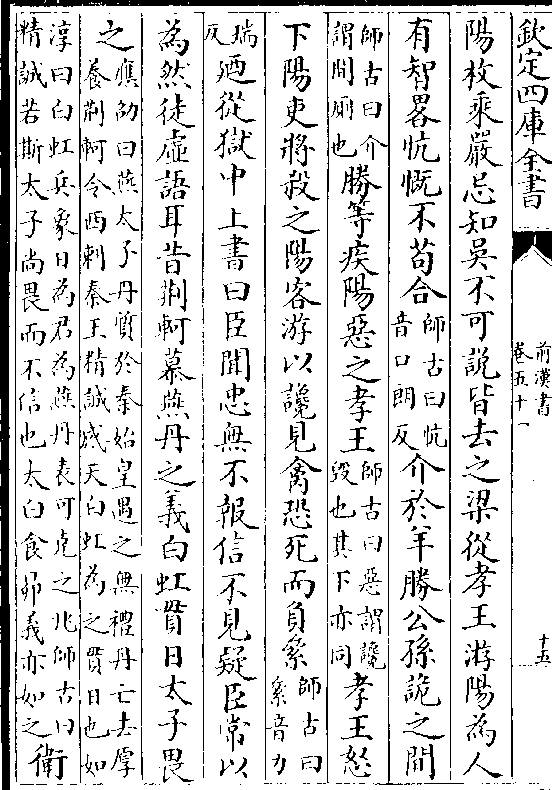 欽定四庫全書
前漢書
卷五十一
十五
陽枚乘嚴忌知吳不可說皆去之梁從孝王游陽為人
有智畧忼慨不苟合師古曰忼音口朗反介於羊勝公孫詭之間
師古曰介謂間厠也勝等疾陽惡之孝王師古曰惡謂讒毀也其下亦同孝王怒
下陽吏將殺之陽客游以讒見禽恐死而負絫師古曰絫音力
瑞反廼從獄中上書曰臣聞忠無不報信不見疑臣常以
為然徒虛語耳昔荆軻慕燕丹之義白虹貫日太子畏
之應劭曰燕太子丹質於秦始皇遇之無禮丹亡去厚養荆軻令西刺秦王精誠感天白虹為之貫日也如
淳曰白虹兵象日為君為燕丹表可克之兆師古曰精誠若斯太子尚畏而不信也太白食昴義亦如之衛